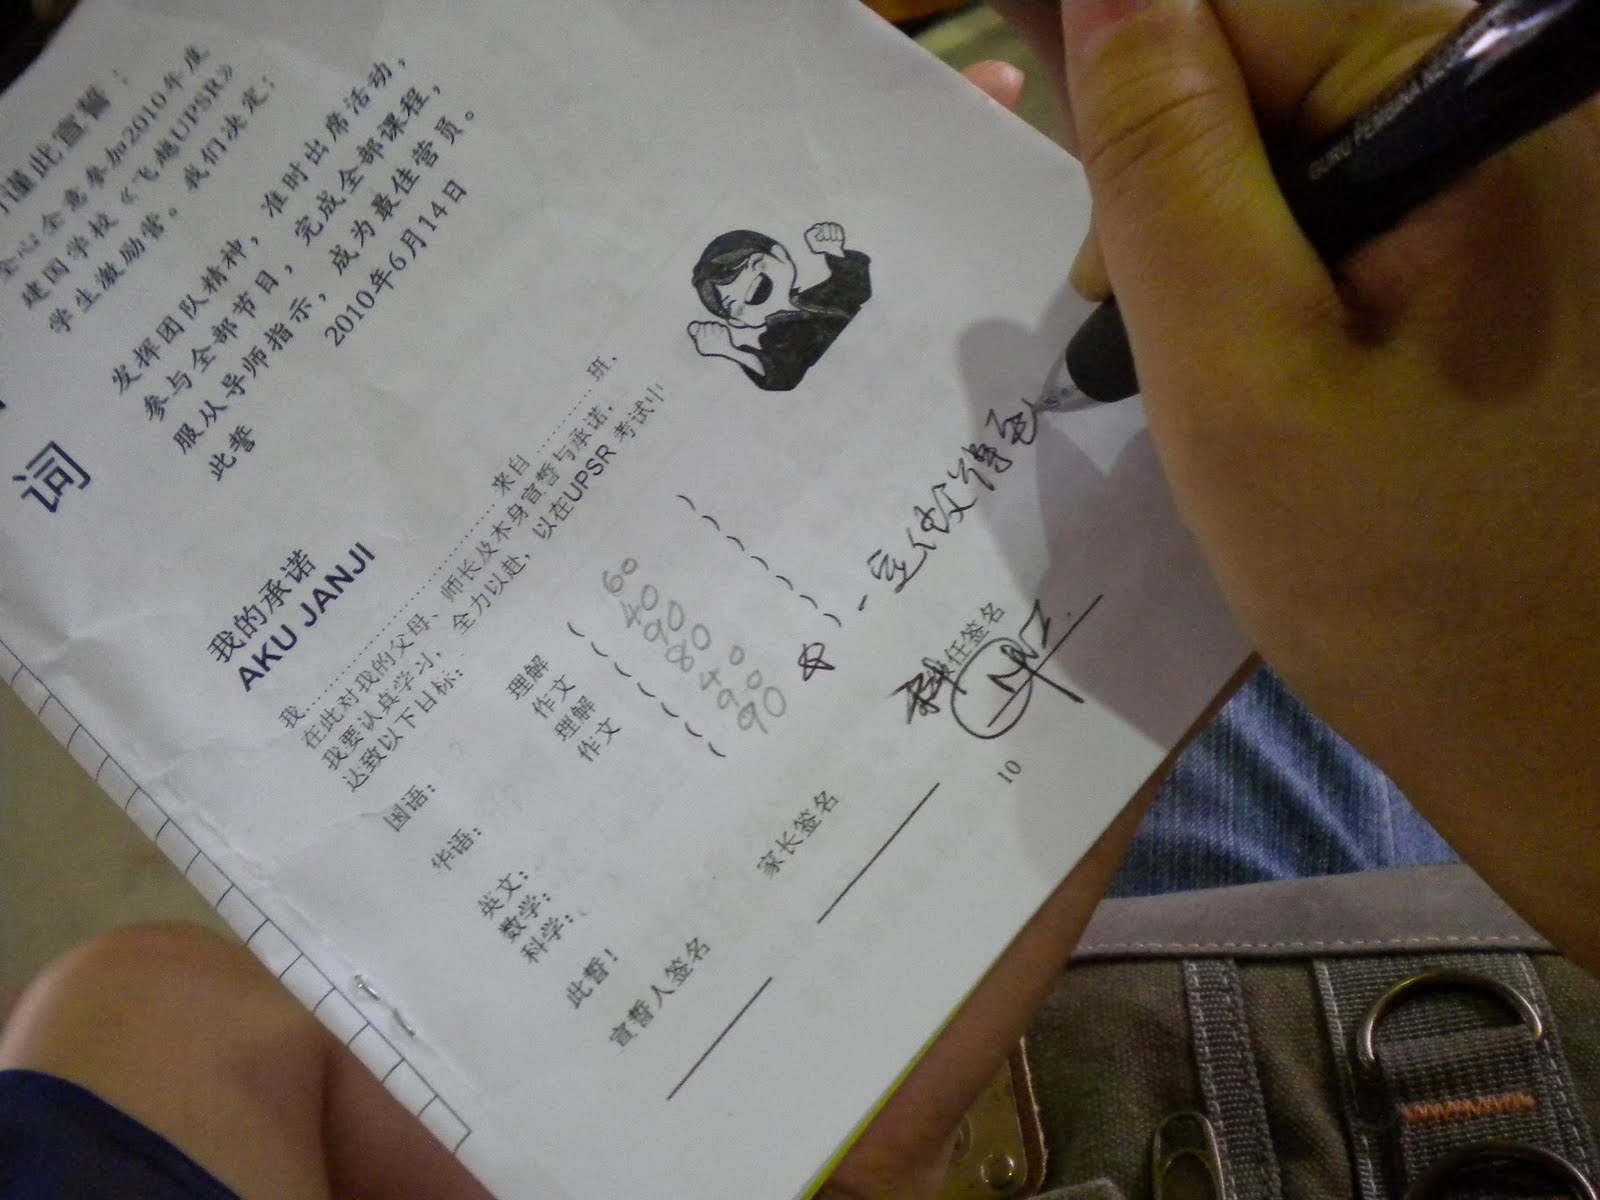 谨此宣誓：
全心全意参加2010年度
建国学校《飞越UPSR》
学生激励营。我们决定：
发挥团队精神，准时出席活动，
参与全部节目，完成全部课程，
服从导师指示，成为最佳营员。
此誓
2010年6月14日
词
我的承诺
AKU JANJI
我..............................来自..............班，
在此对我的父母、师长及本身宣誓与承诺，
我要认真学习，全力以赴，以在UPSR 考试中
达致以下目标：
国语： 理解 ( 60 )
作文 ( 40 )
华语： 理解 ( 90 )
作文 ( 80 )
英文： ( 40 )
数学： ( 90 )
科学： ( 90 )
此誓！
一定做得到
宣誓人签名
家长签名
主任签名
10